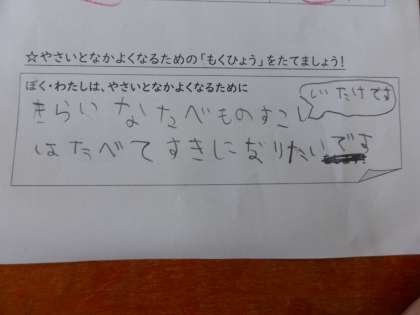 ☆やさいとなかよくなるための「もくひょう」をたてましょう!
ぼく・わたしは、やさいとなかよくなるために
しいたけです
きらいなたべものすこし
はたべてすきになりたいです